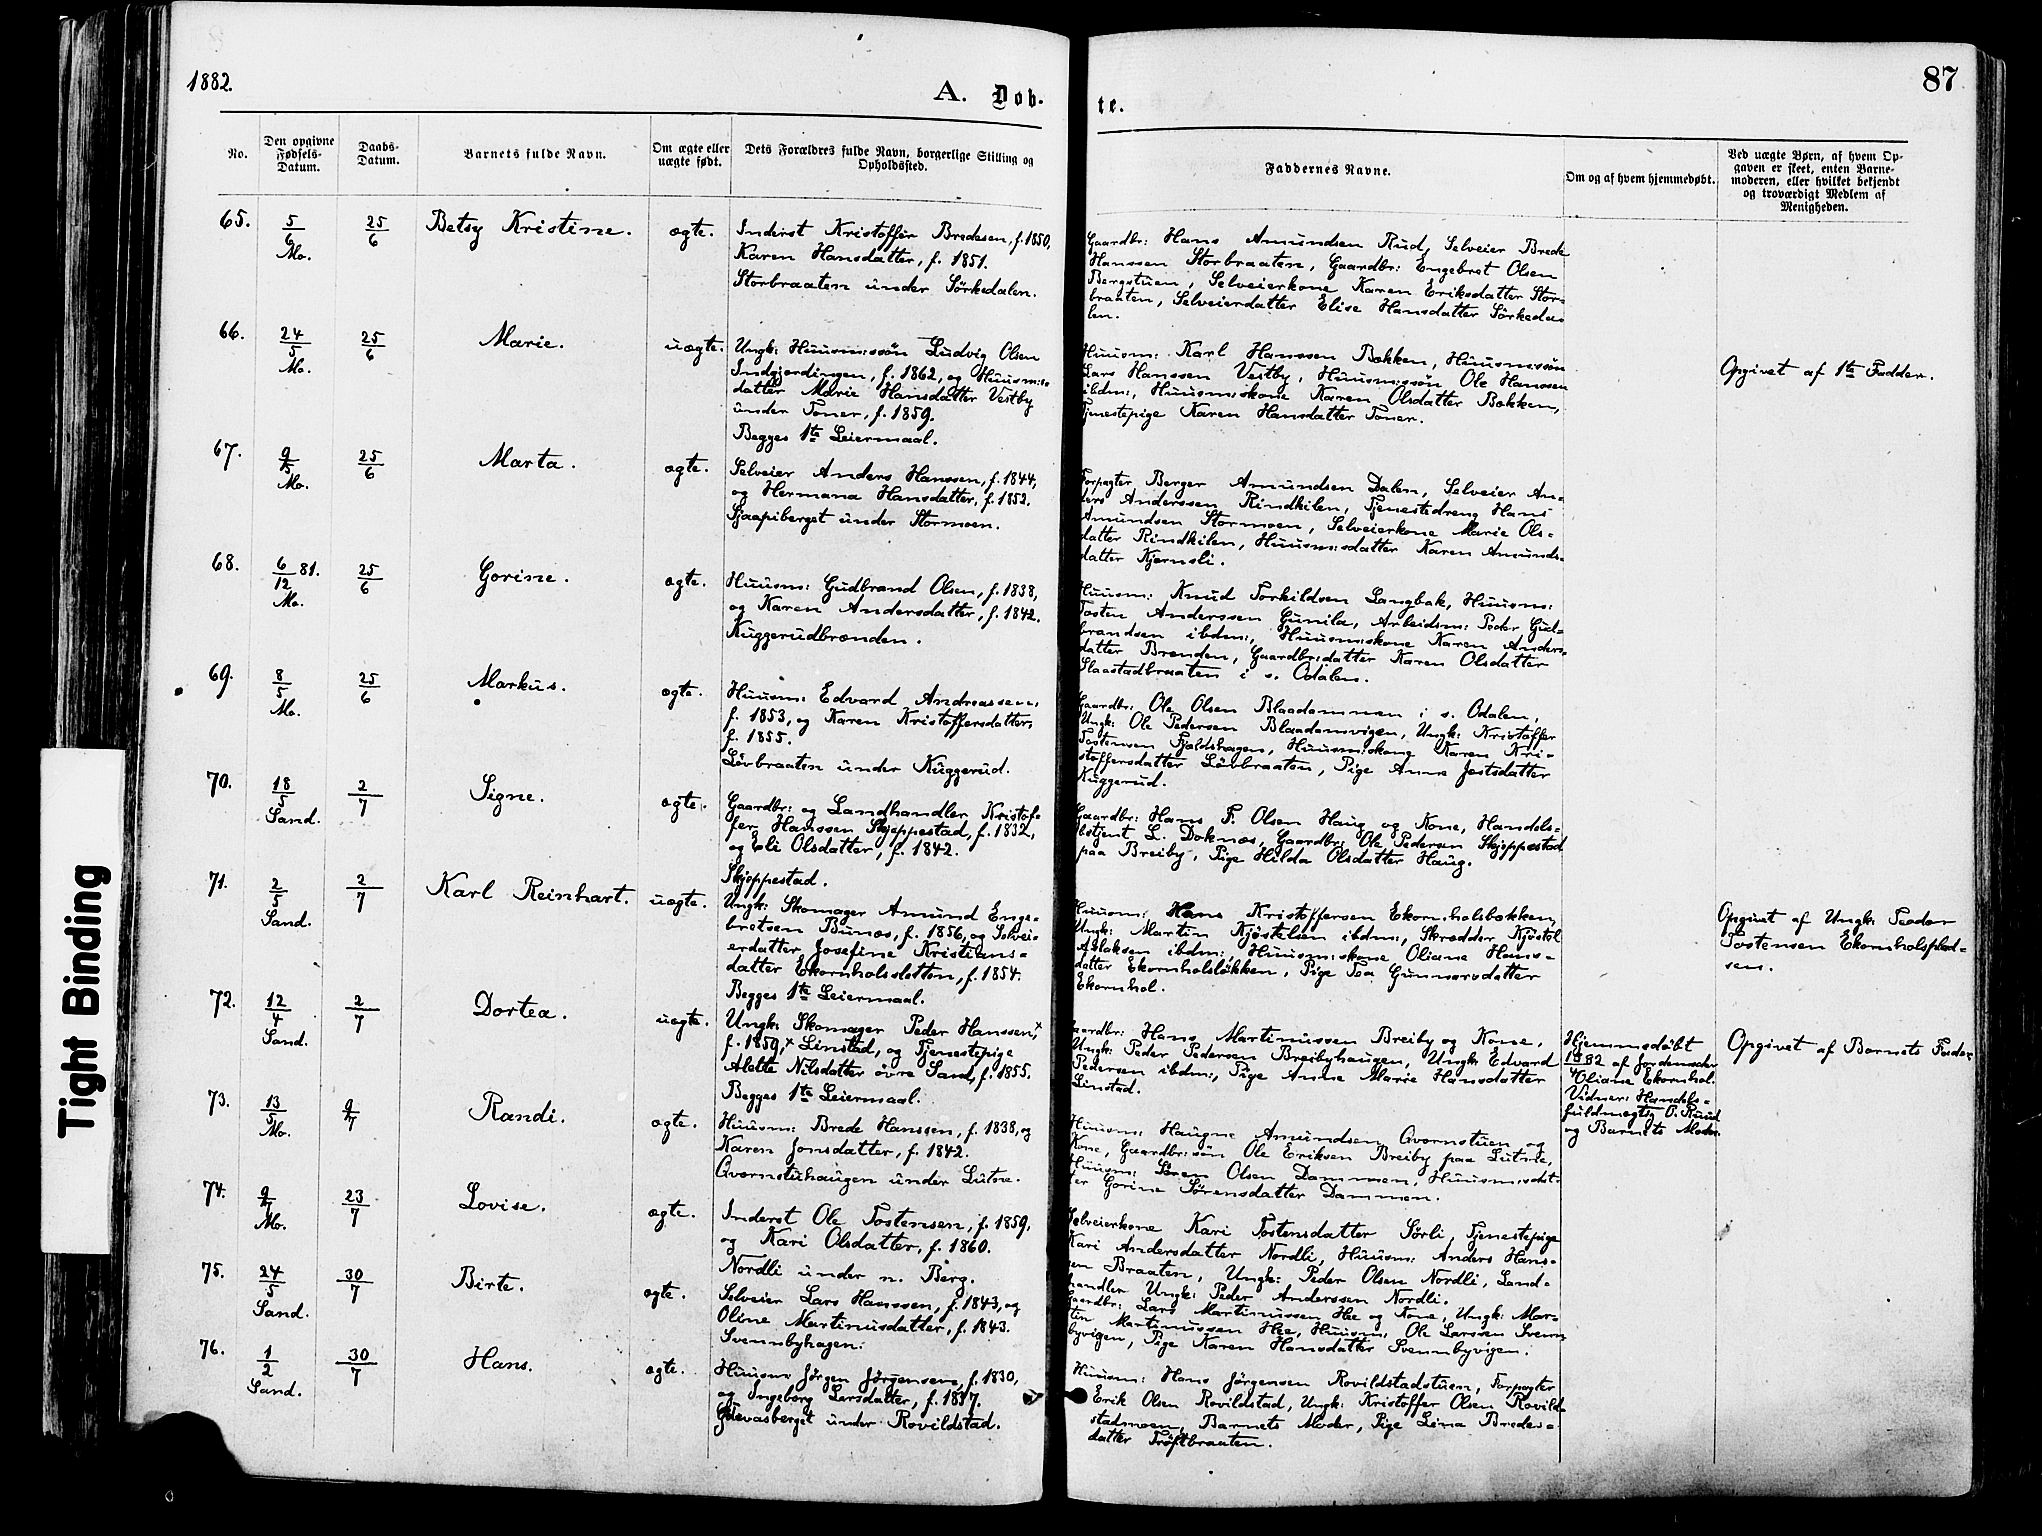 1882.
A. Døb-
te.
87
No.
Den opgivne
Fødsels-
Datum.
Daabs-
Datum.
Barnets fulde Navn.
Om ægte eller
uægte født.
Dets Forældres fulde Navn, borgerlige Stilling og
Opholdssted.
Faddernes Navne.
Om og af hvem hjemmedøbt.
Ved uægte Børn, af hvem Op-
gaven er skeet, enten Barne-
moderen, eller hvilket bekjendt
og troværdigt Medlem af
Menigheden.
65. 5/6 Mo. 25/6 Betsy Kristine. ægte.
Inderst Kristoffer Bredesen, f. 1850,
Karen Hansdatter, f. 1851.
Storbraaten under Sörkedalen.
Gaardbr: Hans Amundsen Rud, Selveier Brede
Hanssen Storbraaten, Gaardbr: Engebret Olsen
Bergstuen, Selveierkone Karen Eriksdatter Stor-
braaten, Selveierdatter Elise Hansdatter Sörkeda-
len.
66. 24/5 Mo. 25/6 Marie. uægte.
Ungk: Huusm:søn Ludvig Olsen
Indgjerdingen, f. 1862, og Huusm:s-
datter Marie Hansdatter Vestby
under Toner, f. 1859.
Begges 1te Leiermaal.
Huusm: Karl Hanssen Bækken, Huusm:søn
Lars Hanssen Vestby, Huusm:søn Ole Hanssen
ibdm:, Huusm:skone Karen Olsdatter Bækken,
Tjenestepige Karen Hansdatter Toner.
Opgivet af 1te Fadder.
67. 9/5 Mo. 25/6 Marta. ægte.
Selveier Anders Hanssen, f. 1844,
og Hermana Hansdatter, f. 1852.
Sjaapiberget under Stormoen.
Forpagter Berger Amundsen Dalen, Selveier An-
ders Anderssen Rindkilen, Tjenestedreng Hans
Amundsen Stormoen, Selveierkone Marie Ols-
datter Rindkilen, Huusm:sdatter Karen Amunds-
datter Kjernsli.
68. 6/12 81. Mo. 25/6 Gorine. ægte.
Huusm: Gudbrand Olsen, f. 1838,
og Karen Andersdatter, f. 1842.
Kuggerudbrænden.
Huusm: Knud Torkildsen Langbak, Huusm:
Tosten Anderssen Gunila, Arbeidsm: Peder Gud-
brandsen ibdm:, Huusm:skone Karen Anders-
datter Brænden, Gaardbr:datter Karen Olsdatter
Slaastadbraaten i s. Odalen.
69. 8/5 Mo. 25/6 Markus. ægte.
Huusm: Edvard Andreassen,
f. 1853, og Karen Kristoffersdatter,
f. 1855.
Lövbraaten under Kuggerud.
Gaardbr: Ole Olsen Blaadammen i s. Odalen,
Ungk: Ole Pedersen Blaadamsvigen, Ungk: Kristoffer
Tostensen Fjeldshagen, Huusm:skone Karen Kri-
stoffersdatter Lövbraaten, Pige Anne Jostsdatter
Kuggerud.
70. 18/5 Sand. 2/7 Signe. ægte.
Gaardbr: og Landhandler Kristof-
fer Hanssen Skjeppestad, f. 1832,
og Eli Olsdatter, f. 1842.
Skjøppestad.
Gaardbr: Hans F. Olsen Haug og Kone, Handels-
betjent L. Doknæs, Gaardbr: Ole Pedersen Skjøppestad
paa Breiby, Pige Hilda Olsdatter Haug.
71. 2/5 Sand. 2/7 Karl Reinhart. uægte.
Ungk: Skomager Amund Enge-
bretsen Bunæs, f. 1856, og Selvei-
erdatter Josefine Kristians-
datter Ekornholssletten, f. 1854.
Begges 1te Leiermaal.
Huusm: Hans Kristoffersen Ekornholsbækken,
Ungk: Martin Kjöstelsen ibdm:, Skrædder Kjöstel
Aslaksen ibdm:, Huusm:skone Oliane Hans-
datter Ekornholsløkken, Pige Toa Gunnarsdatter
Ekornhol.
Opgivet af Ungk: Peder
Tostensen Ekornholsplad-
sen.
72. 12/4 Sand. 2/7 Dortea. uægte.
Ungk: Skomager Peder Hanssen,
f. 1859, Linstad, og Tjenestepige
Alette Nilsdatter övre Sand, f. 1855.
Begges 1te Leiermaal.
Gaardbr: Hans Martinussen Breiby og Kone,
Ungk: Peder Pedersen Breibyhaugen, Ungk: Edvard
Pedersen ibdm:, Pige Anne Marie Hansdatter
Linstad.
Hjemmedöbt
af Jordemoder
Oliane Ekornhol.
Vidner: Handels-
fuldmægtig O. Ruud
og Barnets Moder.
Opgivet af Barnets Fader
73. 13/5 Mo. 9/7 Randi. ægte.
Huusm: Brede Hanssen, f. 1838, og
Karen Jonsdatter, f. 1842.
Qvernstuhaugen under Lutne.
Huusm: Haugne Amundsen Qvernstuen og
Kone, Gaardbr:søn Ole Eriksen Breiby paa Lutne,
Huusm: Sören Olsen Dammen, Huusm:sdat-
ter Gorine Sörensdatter Dammen.
74. 9/7 Mo. 23/7 Lovise. ægte.
Inderst Ole Tostensen, f. 1859,
og Kari Olsdatter, f. 1860.
Nordli under n. Berg.
Selveierkone Kari Tostensdatter Sörli, Tjenestepige
Kari Andersdatter Nordli, Huusm: Anders Hans-
sen Braaten, Ungk: Peder Olsen Nordli, Land-
handler Ungk: Peder Anderssen Nordli.
75. 24/5 Sand. 30/7 Birte. ægte.
Selveier Lars Hanssen, f. 1843, og
Oline Martinusdatter, f. 1843.
Svennbyhagen.
Gaardbr: Lars Martinussen Hee og Kone, Ungk: Mar-
tin Martinussen Hee, Huusm: Ole Larssen Svenn-
byvigen, Pige Karen Hansdatter Svennbyvigen.
76. 1/2 Sand. 30/7 Hans. ægte.
Huusm: Jörgen Jörgensen, f. 1830,
og Ingeborg Larsdatter, f. 1837.
Grevasberget under Rovildstad.
Huusm: Hans Jörgensen Rovildstadstuen, Forpagter
Erik Olsen Rovildstad, Ungk: Kristoffer Olsen Rovild-
stadmoen, Barnets Moder, Pige Lina Bredes-
datter Tröftbraaten.
Tight Binding